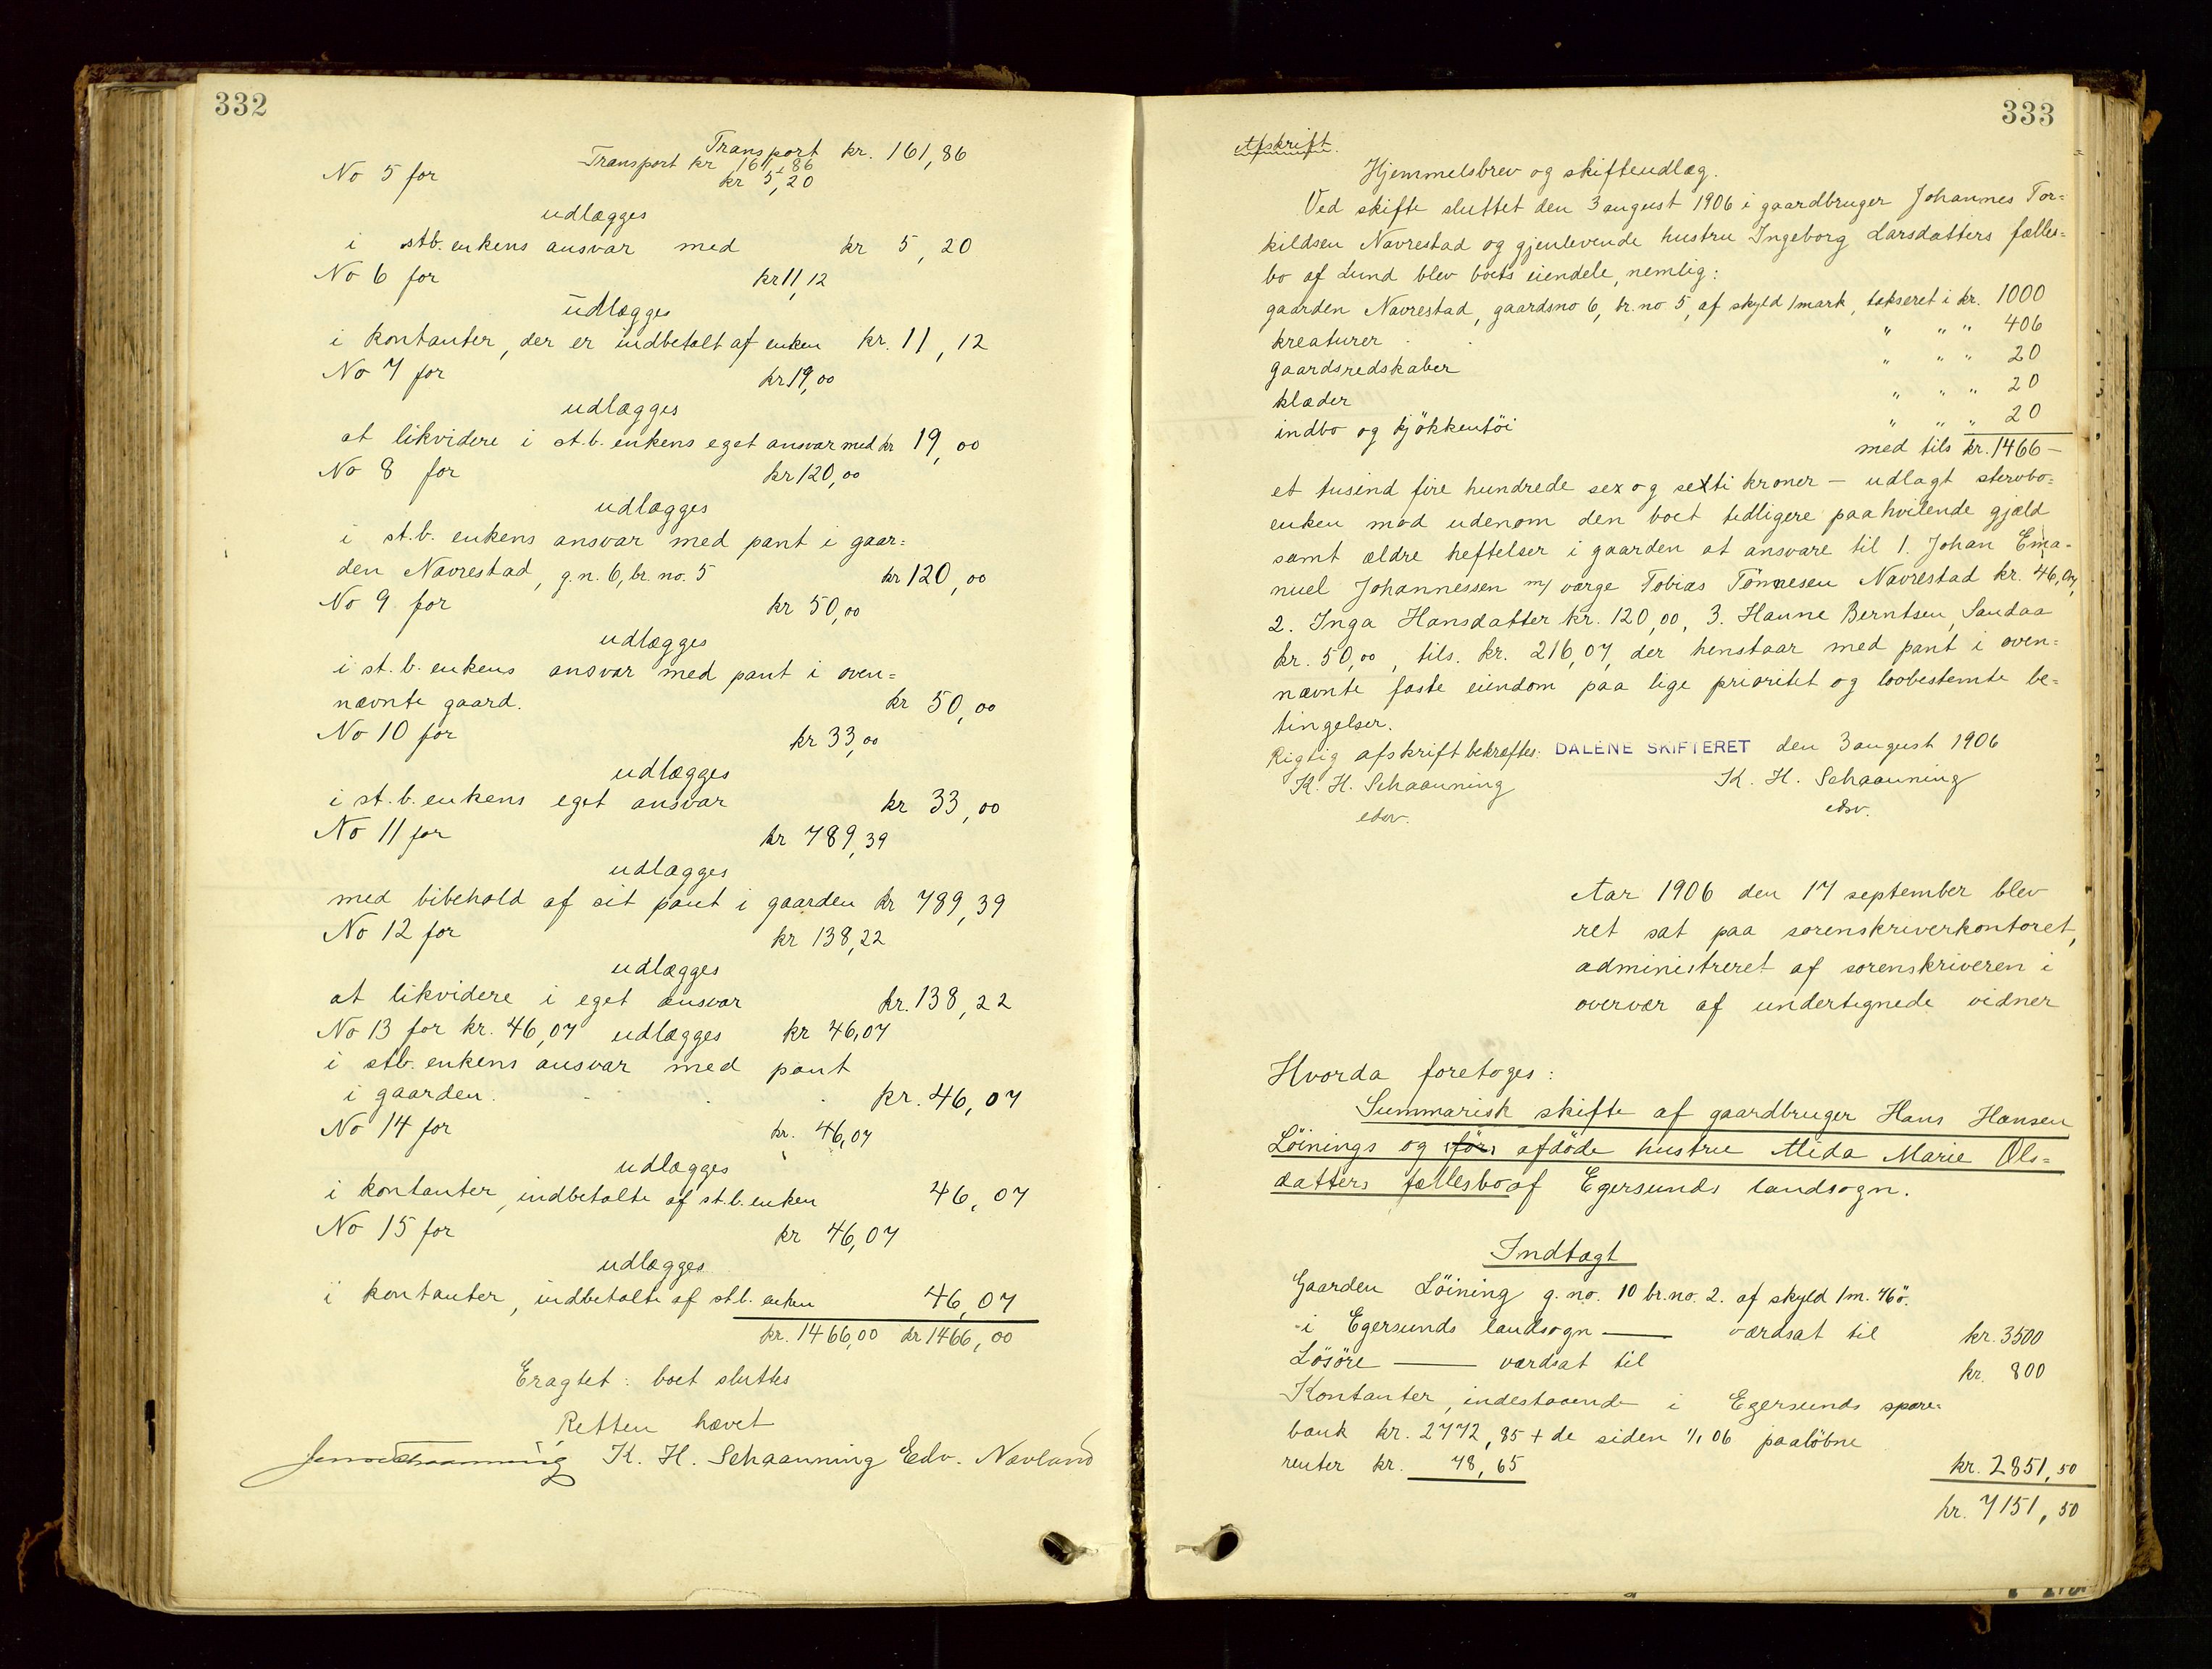 332
Transport kr. 161,86
Transport kr 161,86
No 5 for kr 5,20
udlægges
i stb. enkens ansvar med kr 5,20
No 6 for kr 11,12
udlægges
i kontanter, der er indbetalt af enken kr. 11,12
No 7 for kr 19,00
udlægges
at likvidere i st.b. enkens eget ansvar med kr 19,00
No 8 for kr 120,00
udlægges
i st.b. enkens ansvar med pant i gaar=
den Navrestad, g.n. 6, br. no. 5 kr 120,00
No 9 for kr 50,00
udlægges
i st.b. enkens ansvar med pant i oven=
nævnte gaard. kr 50,00
No 10 for kr 33,00
udlægges
i st.b. enkens eget ansvar kr 33,00
No 11 for kr 789,39
udlægges
med bibehold af sit pant i gaarden kr 789,39
No 12 for kr 138,22
udlægges
at likvidere i eget ansvar kr. 138,22
No 13 for kr. 46,07 udlægges kr 46,07
i stb. enkens ansvar med pant
i gaarden. kr. 46,07
No 14 for kr. 46,07
udlægges
i kontanter, indbetalte af st.b. enken 46,07
No 15 for kr 46,07
udlægges
i kontanter, indbetalte af stb. enken 46,07
kr. 1466,00 kr 1466,00
Eragtet: boet sluttes
Retten hævet
K. H. Schaanning Edv. Nævland
333
Afskrift.
Hjemmelsbrev og skifteudlæg.
Ved skifte sluttet den 3 august 1906 i gaardbruger Johannes Tor=
kildsen Navrestad og gjenlevende hustru Ingeborg Larsdatters fælles=
bo af Lund blev boets eiendele, nemlig:
gaarden Navrestad, gaardsno 6, br. no 5, af skyld 1 mark, takseret i kr. 1000
kreaturer " " " 406
gaardsredskaber " " " 20
klæder " " " 20
indbo og kjökkentöi " " " 20
med tils kr. 1466 —
et tusind fire hundrede sex og sexti kroner — udlagt stervbo=
enken mod udenom den boet tidligere paahvilende gjæld
samt ældre heftelser i gaarden at ansvare til 1. Johan Ema=
nuel Johannessen m/ værge Tobias Tönnesen Navrestad kr. 46,07,
2. Inga Hansdatter kr. 120,00, 3. Hanne Berntsen, Sandaa
kr. 50,00, tils. kr. 216,07, der henstaar med pant i oven=
nævnte faste eiendom paa lige prioritet og lovbestemte be=
tingelser.
Rigtig afskrift bekræftes. DALENE SKIFTERET den 3 august 1906
K. H. Schaanning K. H. Schaanning
edsv. edsv.
Aar 1906 den 17 september blev
ret sat paa sorenskriverkontoret,
administreret af sorenskriveren i
overvær af undertegnede vidner
Hvorda foretoges:
Summarisk skifte af gaardbruger Hans Hansen
Löinings og för afdöde hustru Alida Marie Ols=
datters fællesbo af Egersunds landsogn.
Indtægt
Gaarden Löining g. no. 10 br. no. 2. af skyld 1 m. 76 ö.
i Egersunds landsogn — værdsat til kr. 3500
Lösöre — værdsat til kr. 800
Kontanter, indestaaende i Egersunds spare=
bank kr. 2772,85 + de siden 1/1 06 paalöbne
renter kr. 78,65 kr. 2851,50
kr. 7151,50